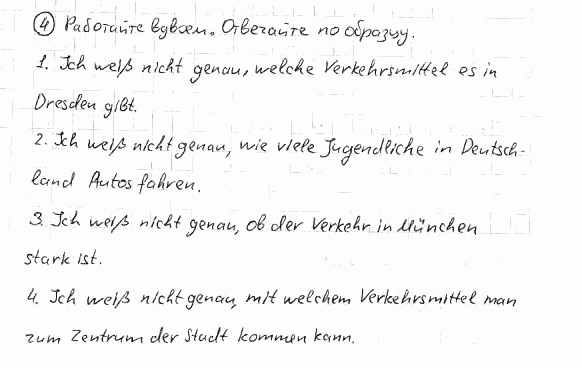 ④ Работайте вдвоем. Отвечайте по образцу.
1. Ich weiß nicht genau, welche Verkehrsmittel es in
Dresden gibt.
2. Ich weiß nicht genau, wie viele Jugendliche in Deutsch-
land Autos fahren.
3. Ich weiß nicht genau, ob der Verkehr in München
stark ist.
4. Ich weiß nicht genau, mit welchem Verkehrsmittel man
zum Zentrum der Stadt kommen kann.